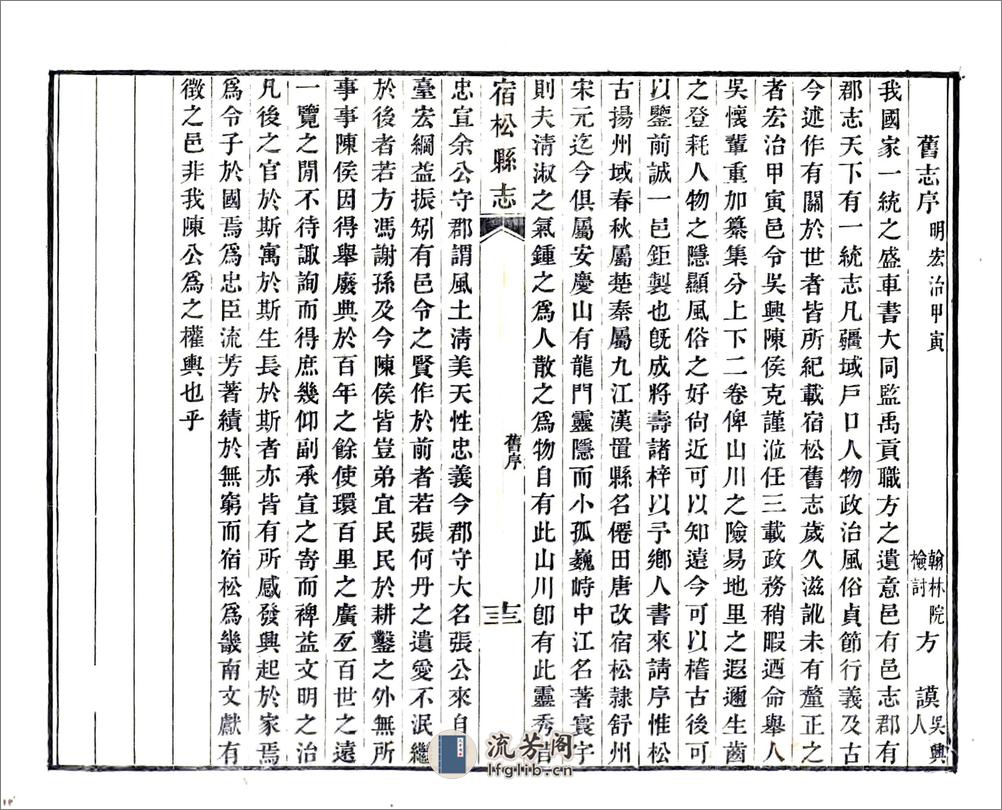 舊志序 明宏治甲寅 翰林院檢討 方 謨 吳興人
我國家一統之盛車書大同監禹貢職方之遺意邑有邑志郡有
郡志天下有一統志凡疆域戶口人物政治風俗貞節行義及古
今述作有關於世者皆所紀載宿松舊志歲久滋訛未有釐正之
者宏治甲寅邑令吳興陳侯克謹涖任三載政務稍暇迺命舉人
吳懷輩重加纂集分上下二卷俾山川之險易地里之遐邇生齒
之登耗人物之隱顯風俗之好尙近可以知遠今可以稽古後可
以鑒前誠一邑鉅製也旣成將壽諸梓以予鄉人書來請序惟松
古揚州域春秋屬楚秦屬九江漢置縣名僊田唐改宿松隷舒州
宋元迄今俱屬安慶山有龍門靈隱而小孤巍峙中江名著寰宇
則夫淸淑之氣鍾之爲人散之爲物自有此山川卽有此靈秀昔
宿松縣志
舊序
十三
忠宣余公守郡謂風土淸美天性忠義今郡守大名張公來自
臺宏綱益振矧有邑令之賢作於前者若張何丹之遺愛不泯繼
於後者若方馮謝孫及今陳侯皆豈弟宜民民於耕鑿之外無所
事事陳侯因得舉廢典於百年之餘使環百里之廣亙百世之遠
一覽之閒不待諏詢而得庶幾仰副承宣之寄而裨益文明之治
凡後之官於斯寓於斯生長於斯者亦皆有所感發興起於家焉
爲令子於國焉爲忠臣流芳著績於無窮而宿松爲畿南文獻有
徵之邑非我陳公爲之權輿也乎
流芳閣
lfglib.cn